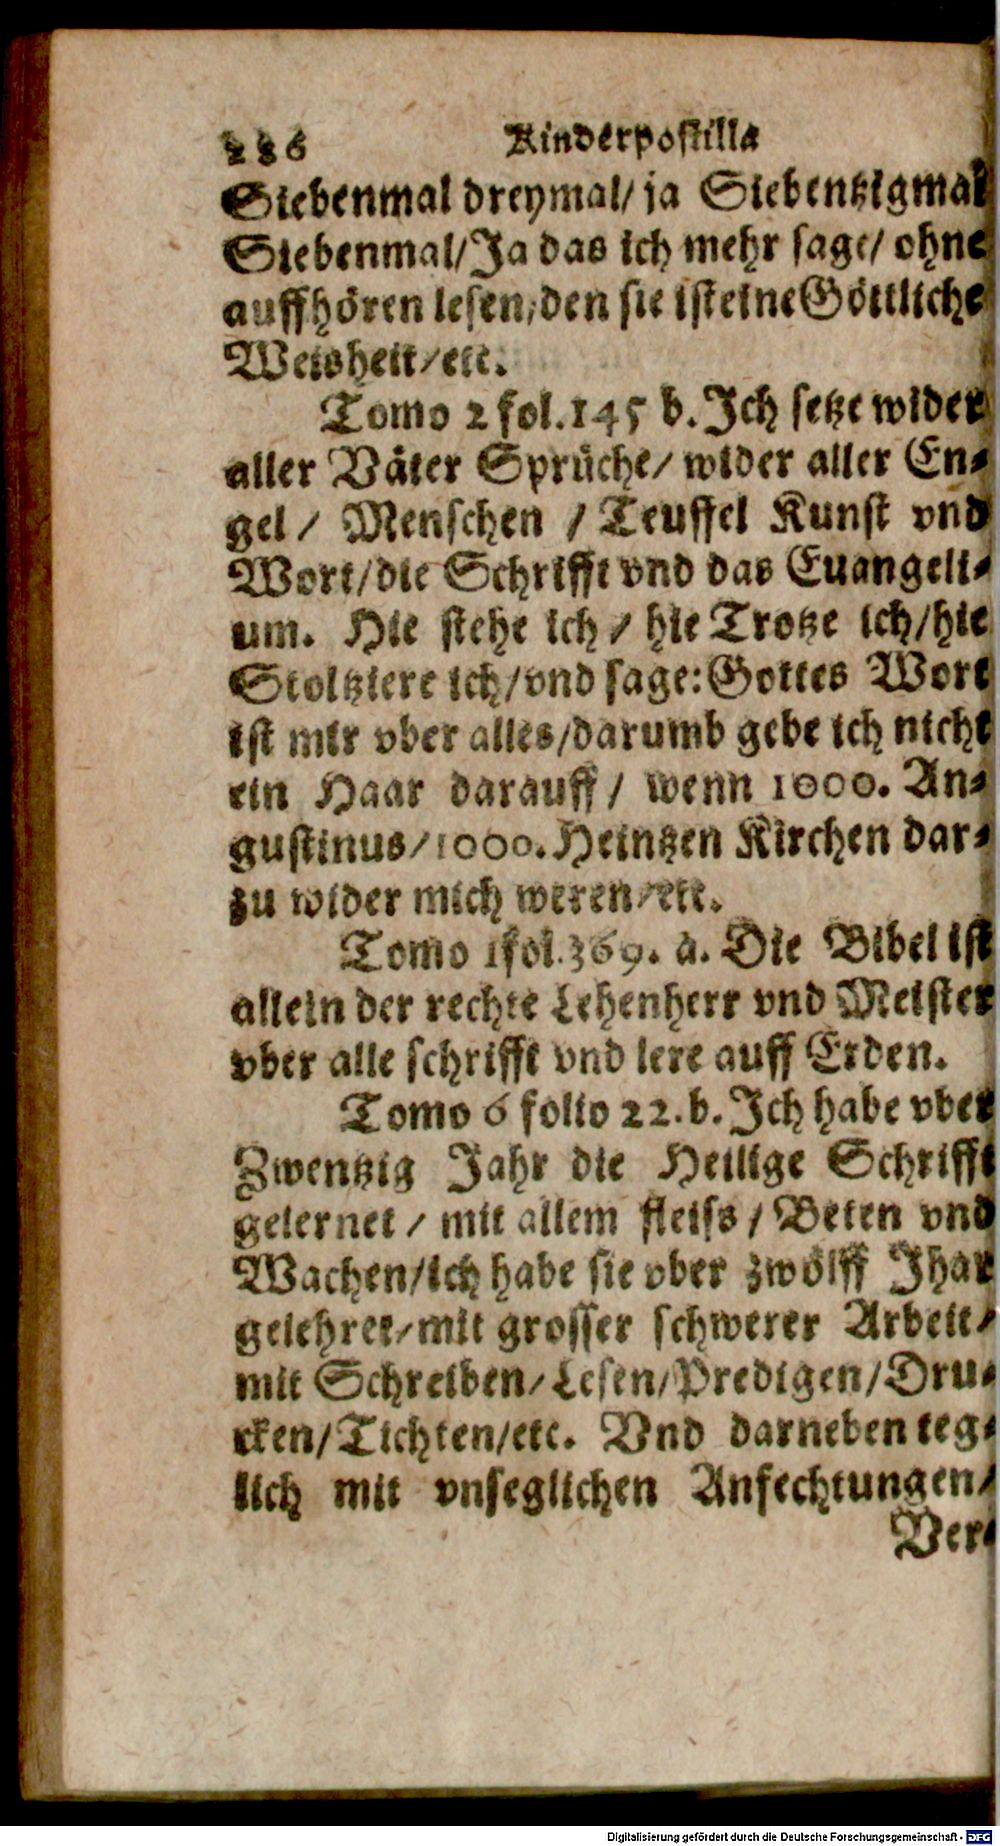 286 Kinderpostilla
Siebenmal dreymal/ ja Siebentzigmal
Siebenmal/Ja das ich mehr sage/ ohne
auffhören lesen/den sie ist eine Göttliche
Weisheit/etc.
Tomo 2 fol.145 b. Ich setze wider
aller Väter Sprüche/ wider aller En-
gel / Menschen / Teuffel Kunst vnd
Wort/die Schrifft vnd das Euangeli-
um. Hie stehe ich / hie Trotze ich/hie
Stoltziere ich/vnd sage: Gottes Wort
ist mir vber alles/darumb gebe ich nicht
ein Haar darauff / wenn 1000. An-
gustinus/1000. Heintzen Kirchen dar-
zu wider mich weren/etc.
Tomo 1 fol.369. a. Die Bibel ist
allein der rechte Lehenherr vnd Meister
vber alle schrifft vnd lere auff Erden.
Tomo 6 folio 22.b. Ich habe vber
Zwentzig Jahr die Heilige Schrifft
gelernet / mit allem fleiss / Beten vnd
Wachen/ich habe sie vber zwölff Jhar
gelehret/mit grosser schwerer Arbeit/
mit Schreiben/Lesen/Predigen/Dru-
cken/Tichten/etc. Vnd darneben teg-
lich mit vnseglichen Anfechtungen/
Ver-
Digitalisierung gefördert durch die Deutsche Forschungsgemeinschaft - DFG